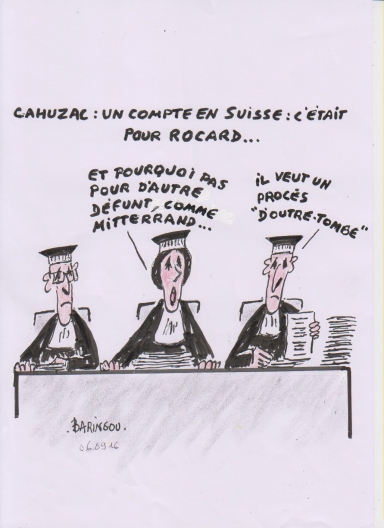 CAHUZAC : UN COMPTE EN SUISSE : C'ÉTAIT
POUR ROCARD...
ET POURQUOI PAS
POUR D'AUTRE
DÉFUNT, COMME
MITTERRAND...
IL VEUT UN
PROCÈS
"D'OUTRE-TOMBE"
.BARINGOU.
06.09.16